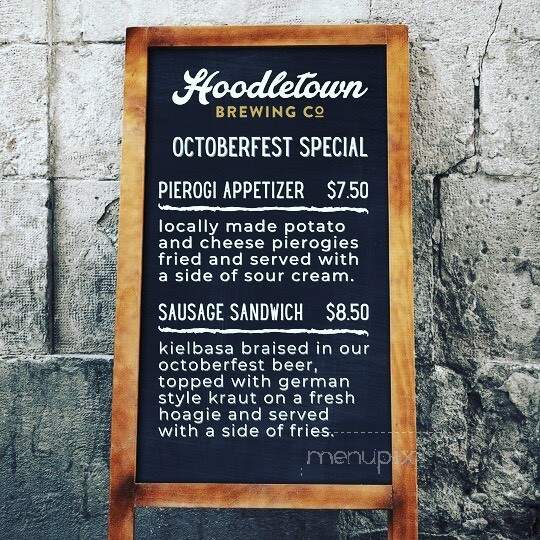 Hoodletown
BREWING CO
OCTOBERFEST SPECIAL
PIEROGI APPETIZER $7.50
locally made potato
and cheese pierogies
fried and served with
a side of sour cream.
SAUSAGE SANDWICH $8.50
kielbasa braised in our
octoberfest beer,
topped with german
style kraut on a fresh
hoagie and served
with a side of fries.
menupix